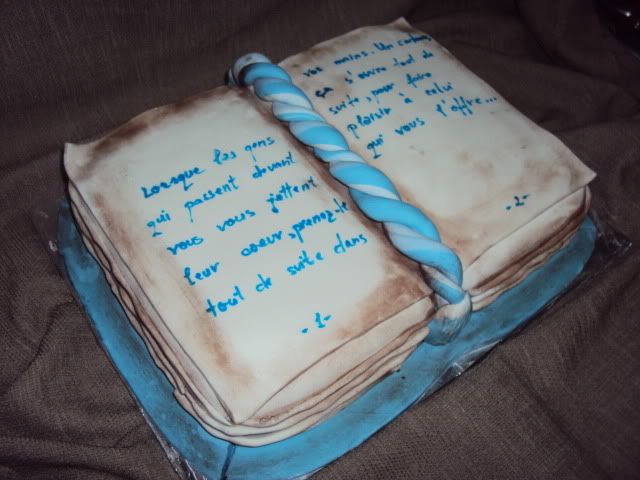 Lorsque les gens
qui passent devant
vous vous jettent
leur coeur, prenez-le
tout de suite dans
-1-
vos mains. Un cadeau,
ça s'ouvre tout de
suite, pour faire
plaisir à celui
qui vous l'offre...
-2-